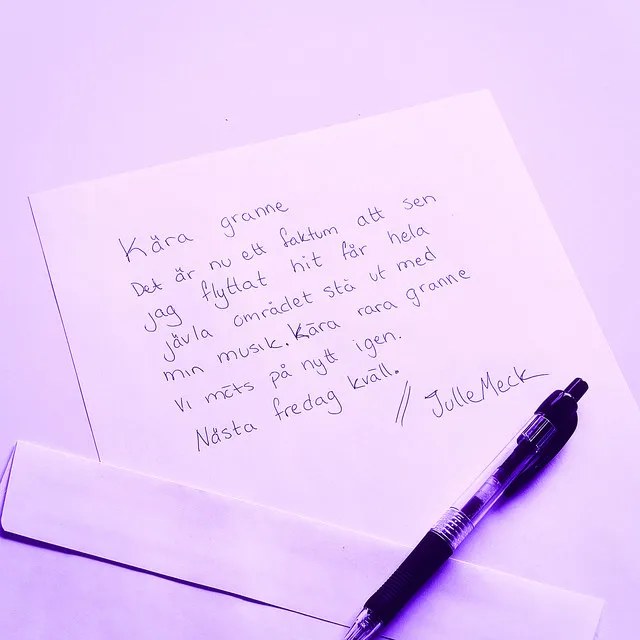 Kära granne
Det är nu ett faktum att sen
jag flyttat hit får hela
jävla området stå ut med
min musik. Kära rara granne
Vi möts på nytt igen.
Nästa fredag kväll.
// JulleMeck